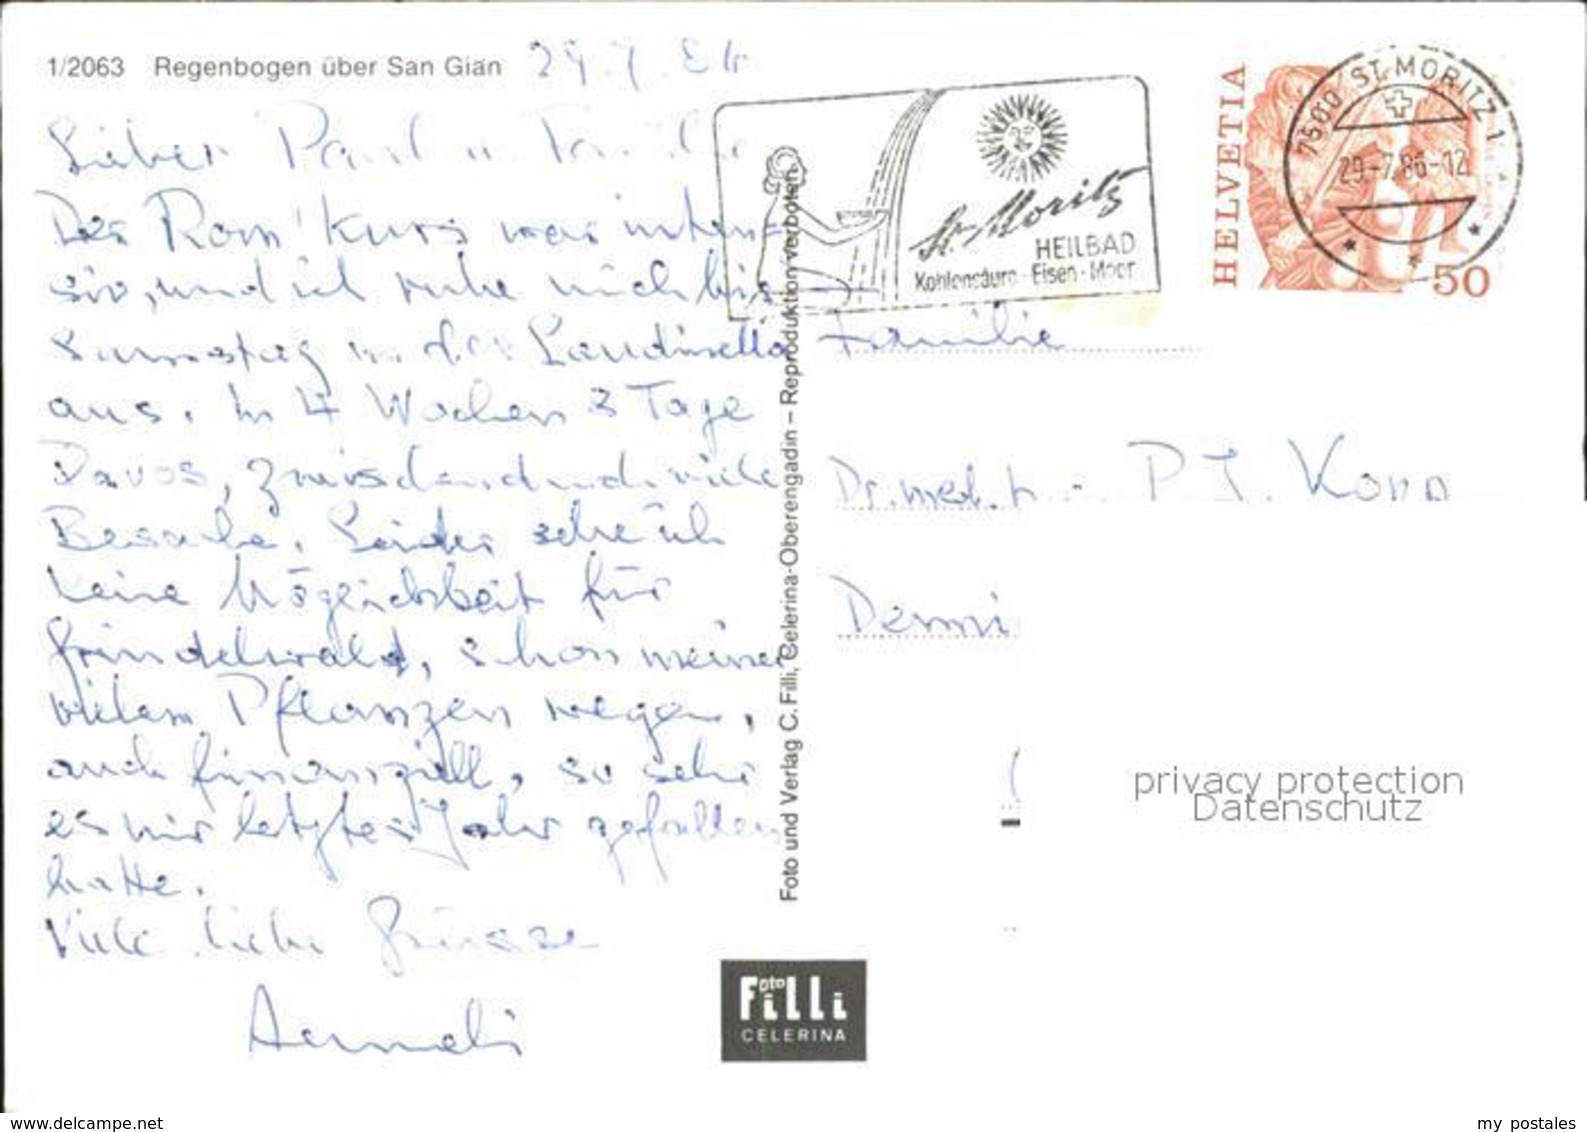 1/2063 Regenbogen über San Gian
29.7.86
Lieber Paul u. Familie
Der Rom' kurs war inten-
siv, und ich ruhe mich bis
Samstag in der Laudinella
aus. In 4 Wochen 3 Tage
Davos, zwischendurch viele
Besuche. Leider sehe ich
keine Möglichkeit für
Grindelwald, schon meiner
vielen Pflanzen wegen,
auch finanziell, so sehr
es mir letztes Jahr gefallen
hatte.
Viele liebe Grüsse
Foto und Verlag C. Filli, Celerina-Oberengadin – Reproduktion verboten
Foto Filli
CELERINA
St. Moritz
HEILBAD
Kohlensäure · Eisen · Moor
HELVETIA
50
7500 ST. MORITZ 1
29.-7.86-12
Familie
Dr. med. P. J.
privacy protection
Datenschutz
www.ansichtskartenversand.com
my postales